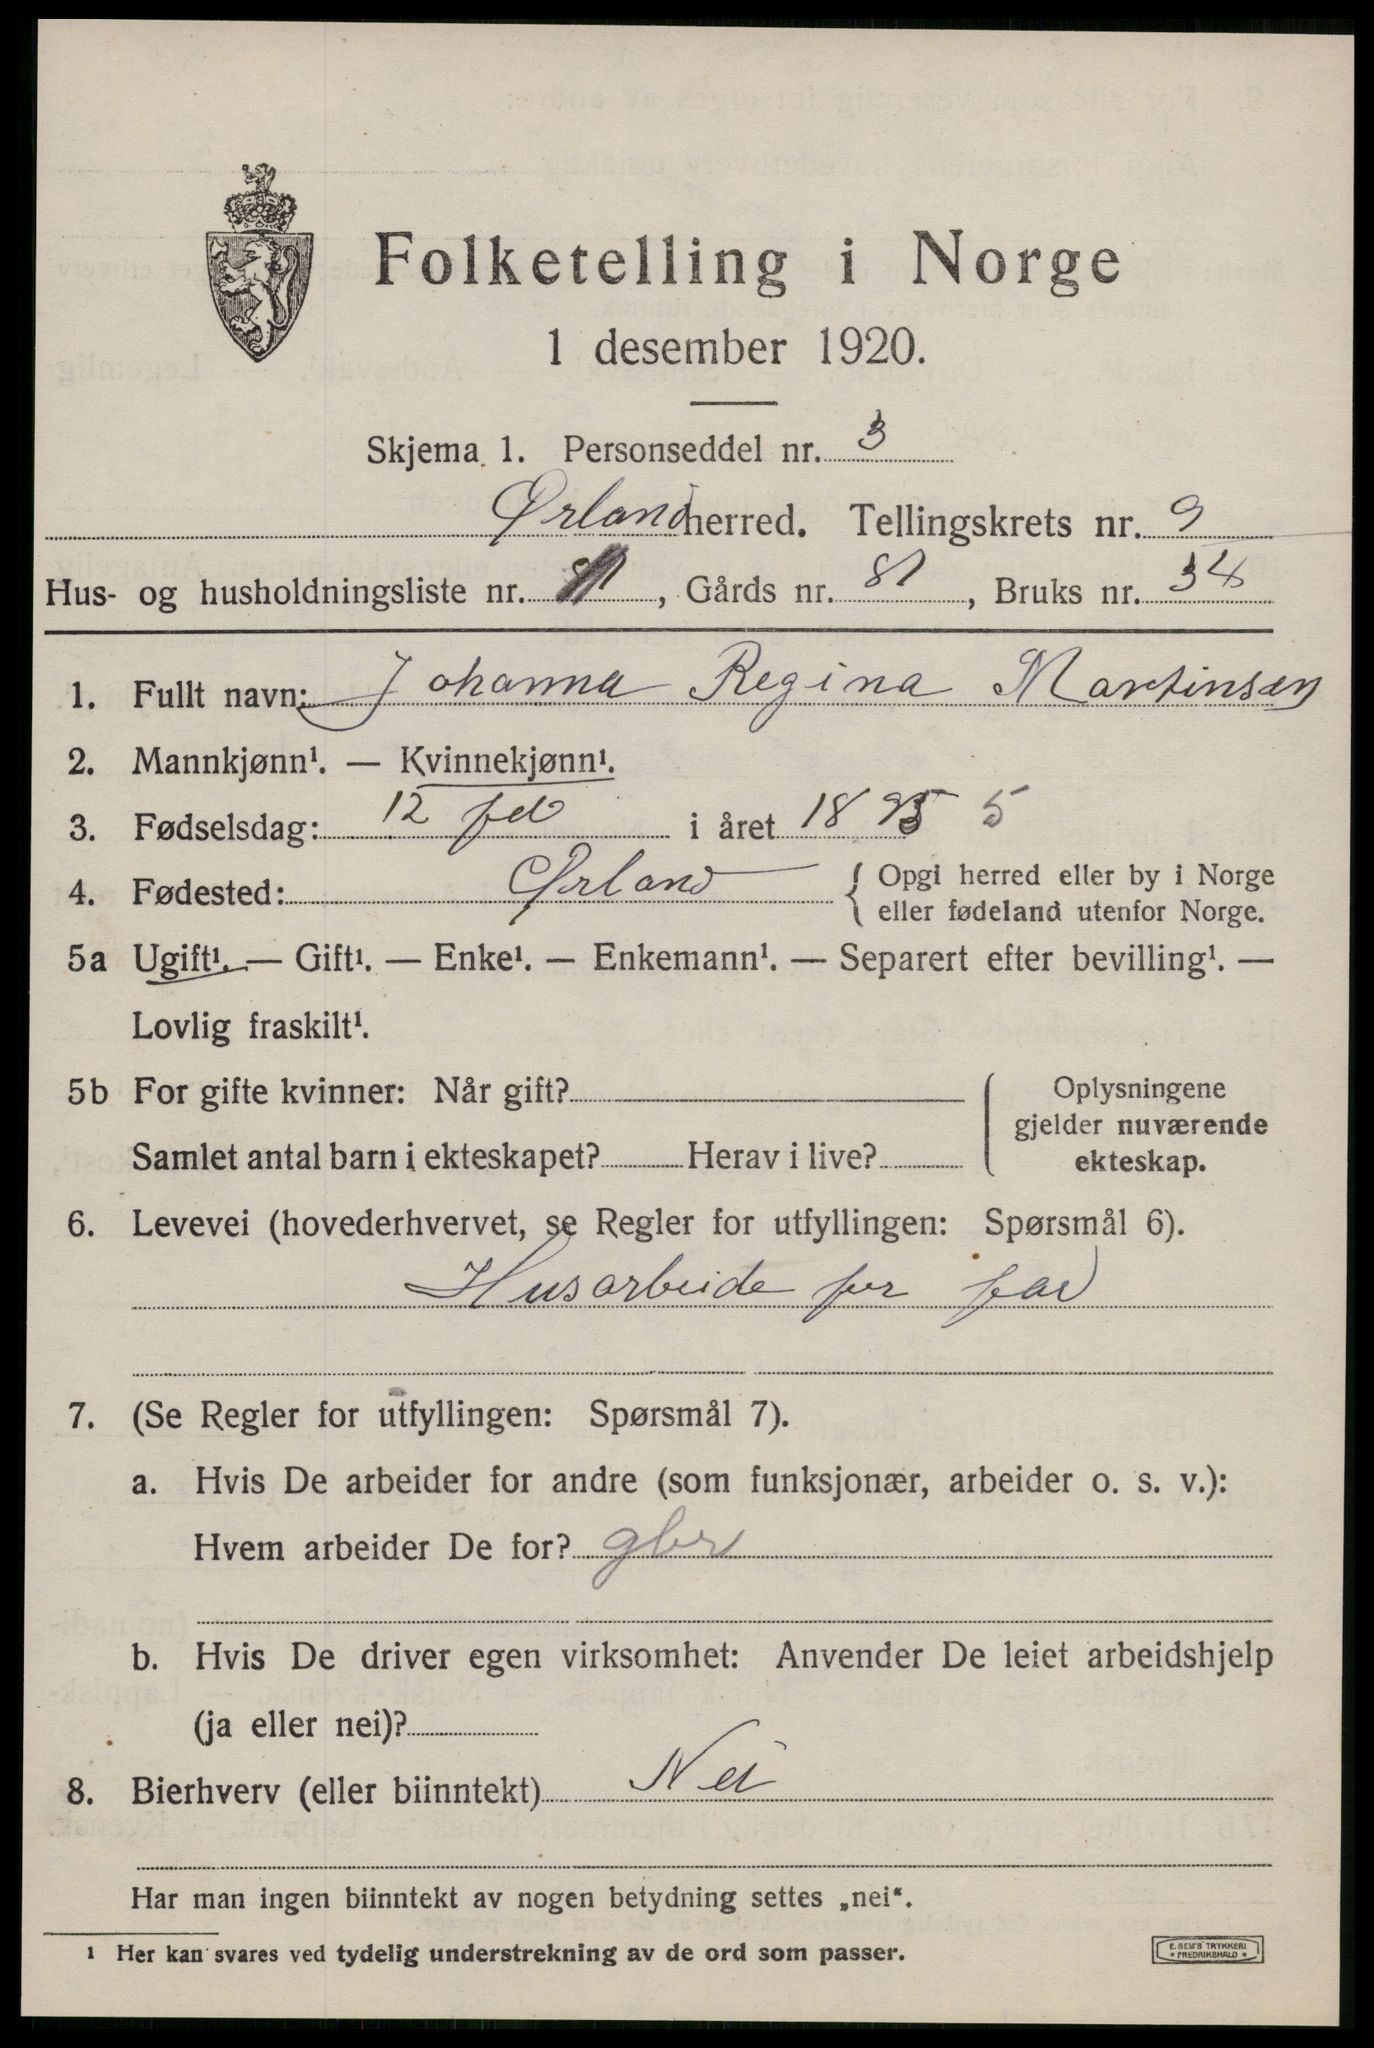 Folketelling i Norge
1 desember 1920.
Skjema 1. Personseddel nr. 3
Ørland herred. Tellingskrets nr. 9
Hus- og husholdningsliste nr. , Gårds nr. 81 , Bruks nr. 34
1. Fullt navn: Johanna Regina Martinsen
2. Mannkjønn¹. — Kvinnekjønn¹.
3. Fødselsdag: 12 feb i året 1895 5
4. Fødested: Ørland { Opgi herred eller by i Norge
eller fødeland utenfor Norge.
5a Ugift¹. — Gift¹. — Enke¹. — Enkemann¹. — Separert efter bevilling¹. —
Lovlig fraskilt¹.
5b For gifte kvinner: Når gift?
Samlet antal barn i ekteskapet? Herav i live?
Oplysningene
gjelder nuværende
ekteskap.
6. Levevei (hovederhvervet, se Regler for utfyllingen: Spørsmål 6).
Husarbeide for far
7. (Se Regler for utfyllingen: Spørsmål 7).
a. Hvis De arbeider for andre (som funksjonær, arbeider o. s. v.):
Hvem arbeider De for? gbr
b. Hvis De driver egen virksomhet: Anvender De leiet arbeidshjelp
(ja eller nei)?
8. Bierhverv (eller biinntekt) Nei
Har man ingen biinntekt av nogen betydning settes „nei“.
¹ Her kan svares ved tydelig understrekning av de ord som passer.
E. SEM'S TRYKKERI
* FREDRIKSHALD *